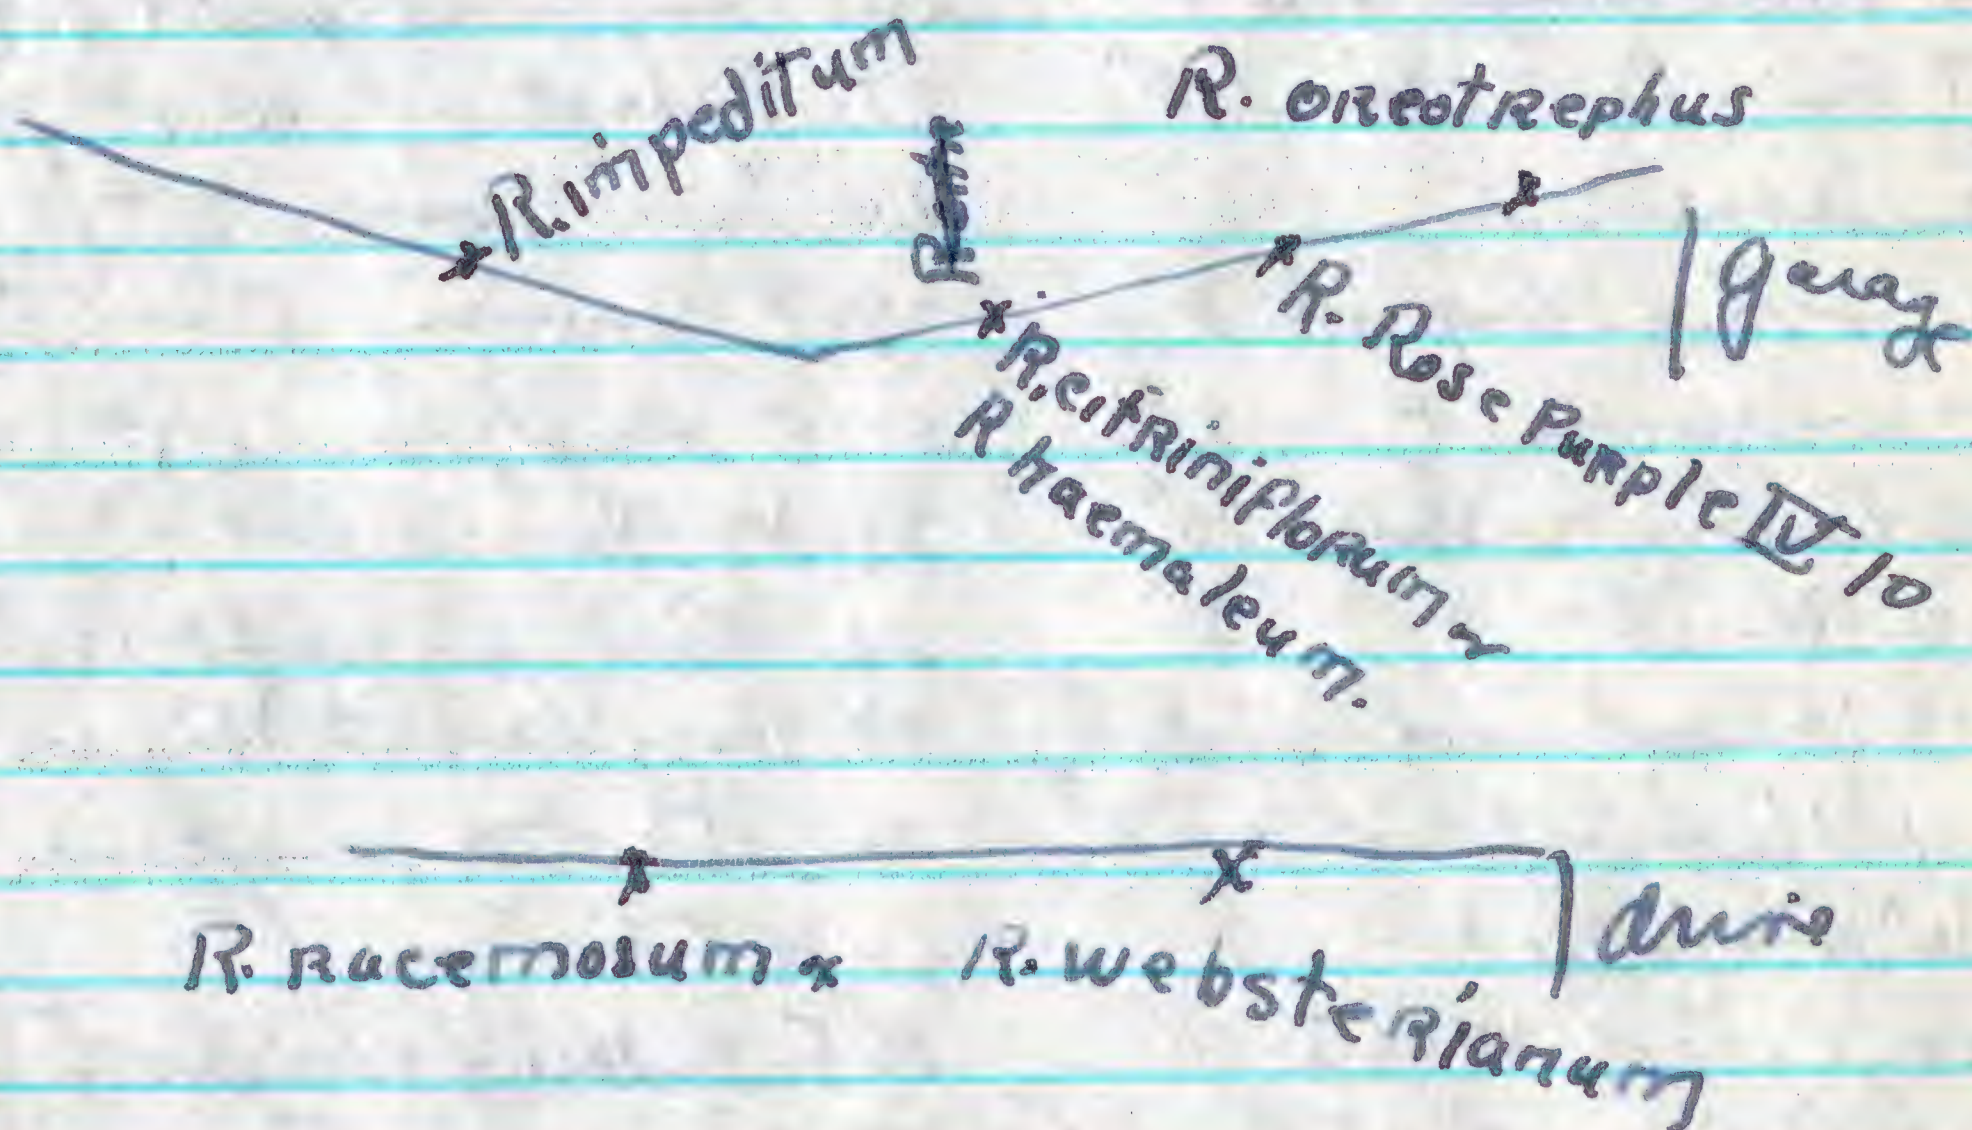 R. impeditum
R. oreotrephus
garage
R. Rose Purple IV 10
R. citriniflorum x
R haemaleum.
R. racemosum x
R. websterianum
drive